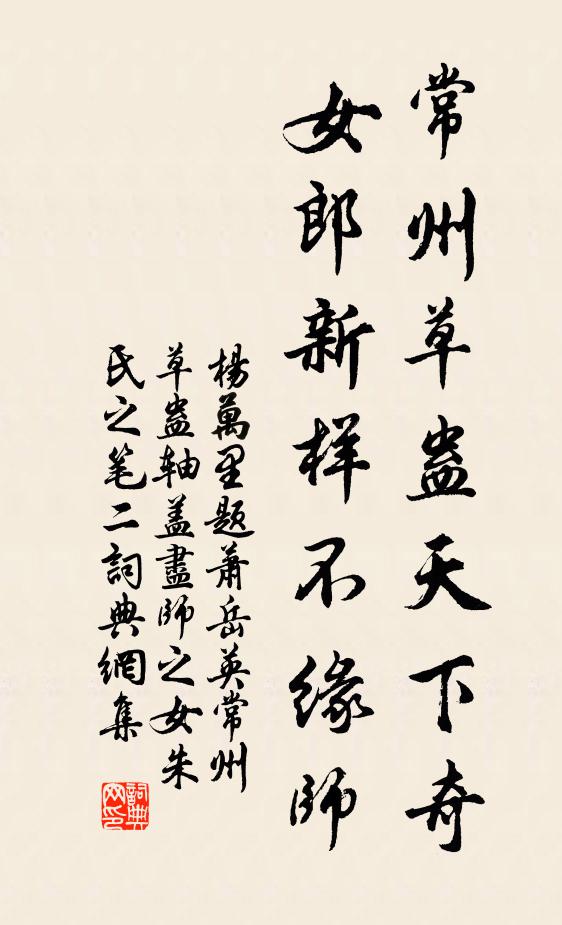 常州草蟲天下奇
女郎新样不缘師
楊萬里题萧岳英常州
草蟲轴盖畫師之女朱
氏之笔二詞典網集
詞典網印